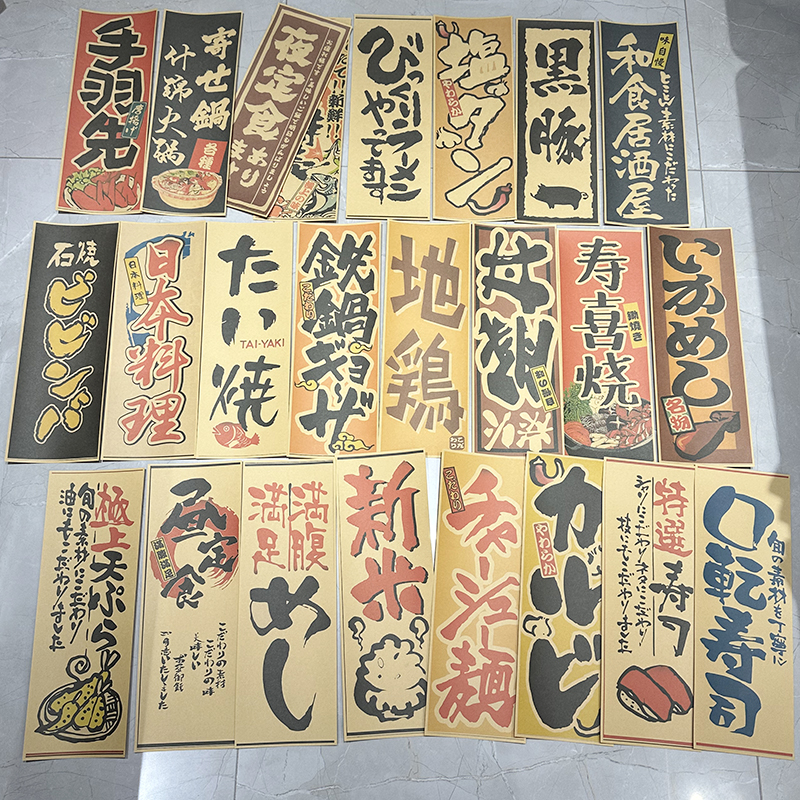 手羽先
唐揚げ
寄せ鍋
什锦火锅
各種
夜定食あります
びっくりラーメン
やってます
塩タン
やわらか
黒豚
味自慢
和食居酒屋
とことん素材にこだわった
石焼
ビビンバ
日本料理
日本料理
たい焼
TAI-YAKI
鉄鍋ギョーザ
こだわり
地鶏
こだわり
炭火
寿喜焼
鋤焼き
いかめし
名物
極上天ぷら
旬の素材にこだわり
油にもこだわりました
昼定食
こだわりの素材
こだわりの味
美味しい
満腹
満足
めし
新米
こだわり
チャーシュー麺
カルビ
やわらか
特選
寿司
シャリにこだわり
ネタにこだわり
技にもこだわりました
回転寿司
旬の素材を丁寧に